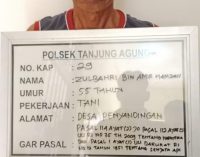 POLSEK TANJUNG AGUNG
NO. KAP : 29
NAMA : ZULBAHRI BIN AMB HAMDAN
UMUR : 55 TAHUN
PEKERJAAN : TANI
ALAMAT : DESA PENYANDINGAN
PASAL 114 AYAT (2) PASAL 112 AYAT (2)
UU RI NO 35 TH 2009 TENTANG NARKOTIKA
GAR PASAL :
TAHUN 1951 TENTANG SENJATA API